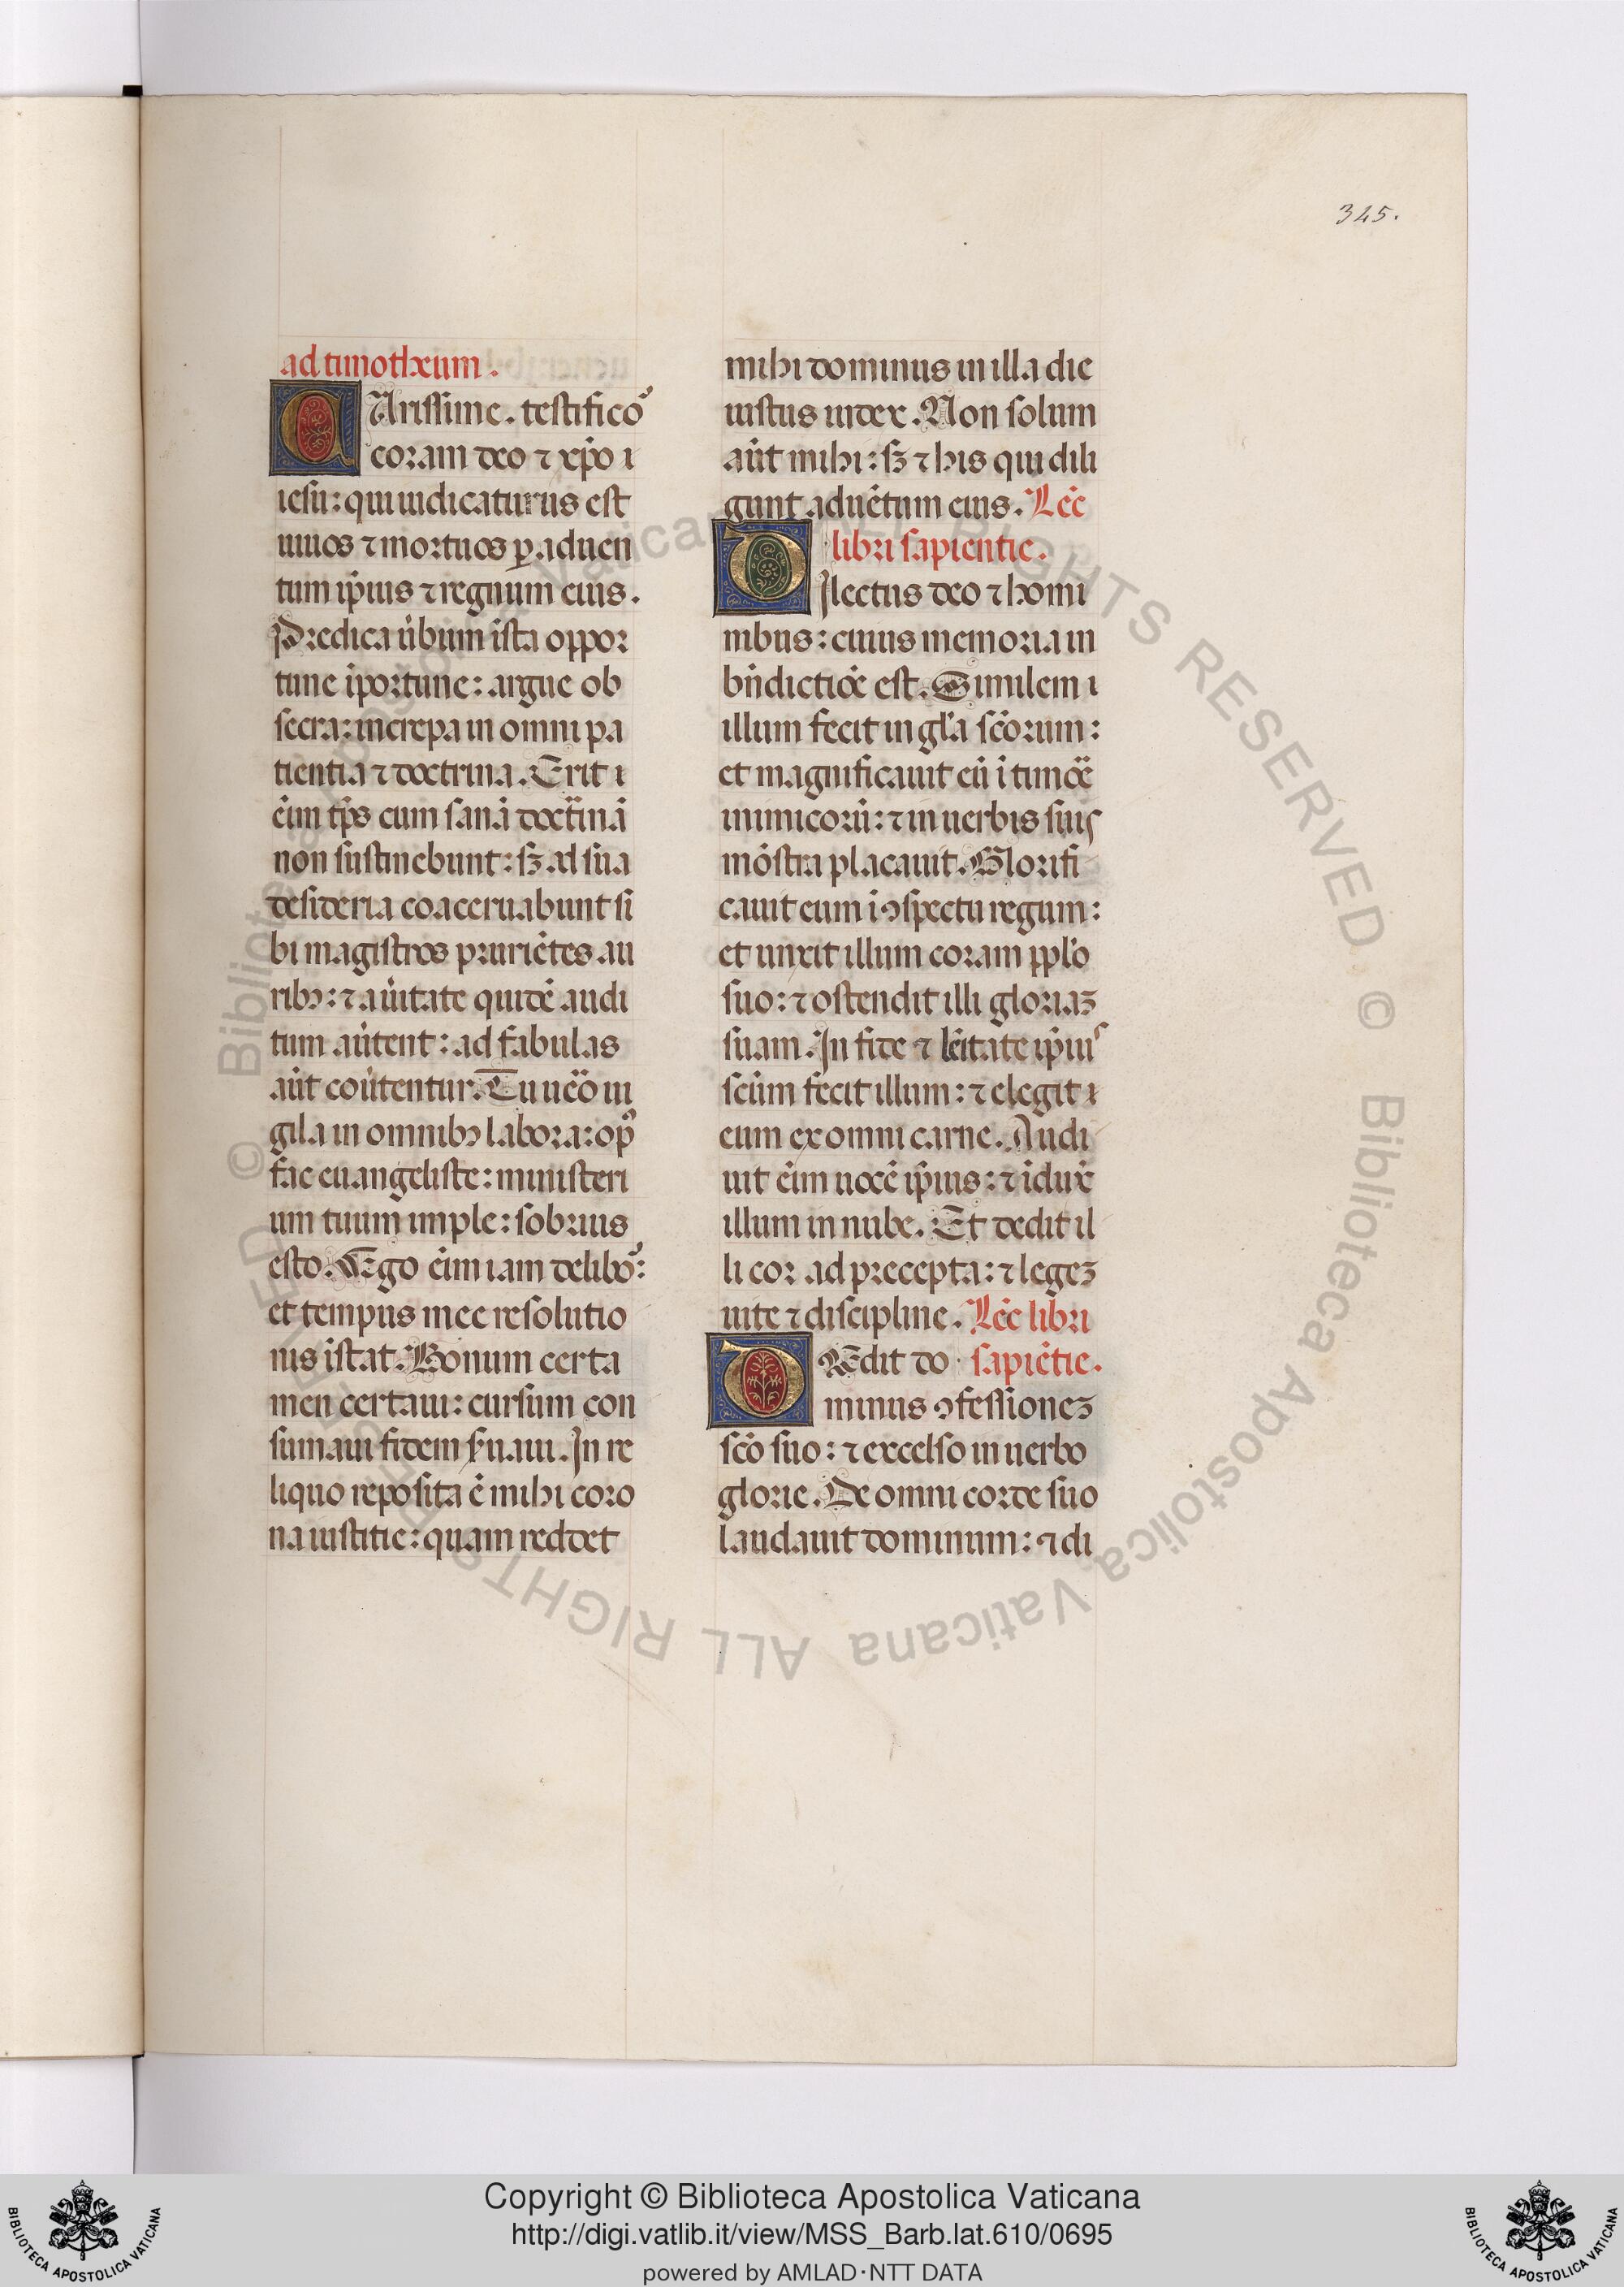 345.
ad timotheum.
CArissime. testificoꝛ
coram deo ⁊ xp̄o i
iesu: qui iudicaturus est
uiuos ⁊ mortuos ꝑ aduen
tum ip̄ius ⁊ regnum eius.
Predica ūbum ista oppor
tune īportune: argue ob
secra: increpa in omni pa
tientia ⁊ doctrina. Erit i
ēim tp̄s cum sanā doct̄inā
non sustinebunt: sꝫ ad sua
desideria coaceruabunt si
bi magistros pruriētes au
ribꝫ: ⁊ a ūitate quidē audi
tum aūtent: ad fabulas
aūt coūtentur. Tu ūo ui
gila in omnibꝫ labora: opꝰ
fac euangeliste: ministeri
um tuum imple: sobrius
esto. Ego ēim iam deliboꝛ:
et tempus mee resolutio
nis īstat. Bonum certa
men certaui: cursum con
sumaui fidem s̄uaui. In re
liquo reposita ē mihi coro
na iustitie: quam reddet
mihi dominus in illa die
iustus iudex. Non solum
aūt mihi: sꝫ ⁊ his qui dili
gunt aduētum eius. Lēc
libri sapientie.
DIlectus deo ⁊ homi
nibus: cuius memoria in
bn̄dictiōe est. Similem i
illum fecit in gl̄a scōrum:
et magnificauit eū ī timōe
inimicorū: ⁊ in uerbis suis
mōstra placauit. Glorifi
cauit eum ī ꝯspectu regum:
et unxit illum coram ppl̄o
suo: ⁊ ostendit illi gloriaꝫ
suam. In fide ⁊ lēitate ip̄ius
scūm fecit illum: ⁊ elegit i
eum ex omni carne. Audi
uit ēim uocē ip̄ius: ⁊ īdux̄
illum in nube. Et dedit il
li cor ad precepta: ⁊ legeꝫ
uite ⁊ discipline. Lēc libri
DEdit do sapiētie.
minus ꝯfessioneꝫ
scō suo: ⁊ excelso in uerbo
glorie. De omni corde suo
laudauit dominum: ⁊ di
© Biblioteca Apostolica Vaticana ALL RIGHTS RESERVED © Biblioteca Apostolica Vaticana ALL RIGHTS RESERVED
Copyright © Biblioteca Apostolica Vaticana
http://digi.vatlib.it/view/MSS_Barb.lat.610/0695
powered by AMLAD·NTT DATA
BIBLIOTECA APOSTOLICA VATICANA
BIBLIOTECA APOSTOLICA VATICANA